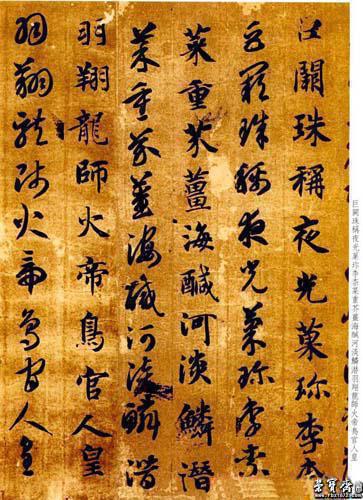 巨闕珠稱夜光菓珍李柰菜重芥薑海鹹河淡鱗潛羽翔龍師火帝鳥官人皇
巨闕珠稱夜光菓珍李柰
巨闕珠稱夜光菓珍李柰
菜重芥薑海醎河淡鱗潛
菜重芥薑海醎河淡鱗潛
羽翔龍師火帝鳥官人皇
羽翔龍師火帝鳥官人皇
榮寶齋